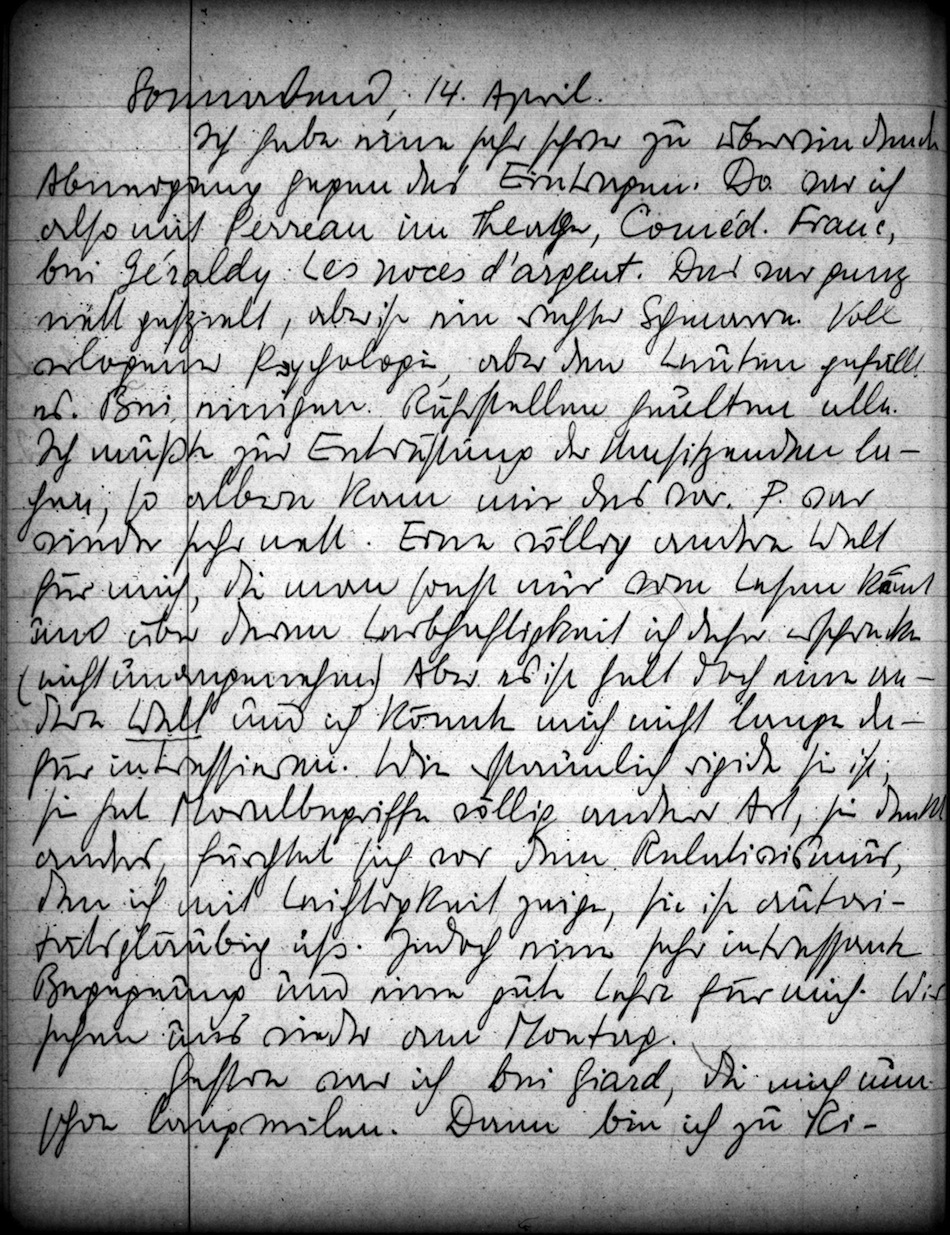 Sonnabend, 14. April.
Ich habe eine sehr schwer zu überwindende
Abneigung gegen das Eintragen. Da war ich
also mit Perreau im Theater, Coméd. Franc,
bei Géraldy Les noces d'argent. Das war ganz
nett gespielt, aber ist ein rechter Schmarrn. Voll
verlogener Psychologie, aber den Leuten gefällt
es. Bei einigen Rührstellen heulten alle.
Ich mußte zur Entrüstung der Umsitzenden la-
chen, so albern kam mir das vor. P. war
wieder sehr nett. Eine völlig andere Welt
für mich, die man sonst nur vom Lesen kennt
und über deren Leibhaftigkeit ich daher erschrecke
(nicht unangenehm) Aber es ist halt doch eine an-
dere Welt und ich könnte mich nicht lange da-
für interessieren. Wie erstaunlich rigide sie ist,
sie hat Moralbegriffe völlig anderer Art, sie denkt
anders, fürchtet sich vor dem Relativismus,
den ich mit Leichtigkeit zeige, sie ist autori-
tätsgläubig usf. Jedoch eine sehr interessante
Begegnung und eine gute Lehre für mich. Wir
sehen uns wieder am Montag.
Gestern war ich bei Giard, die mich nun
schon langweilen. Dann bin ich zu Ri-